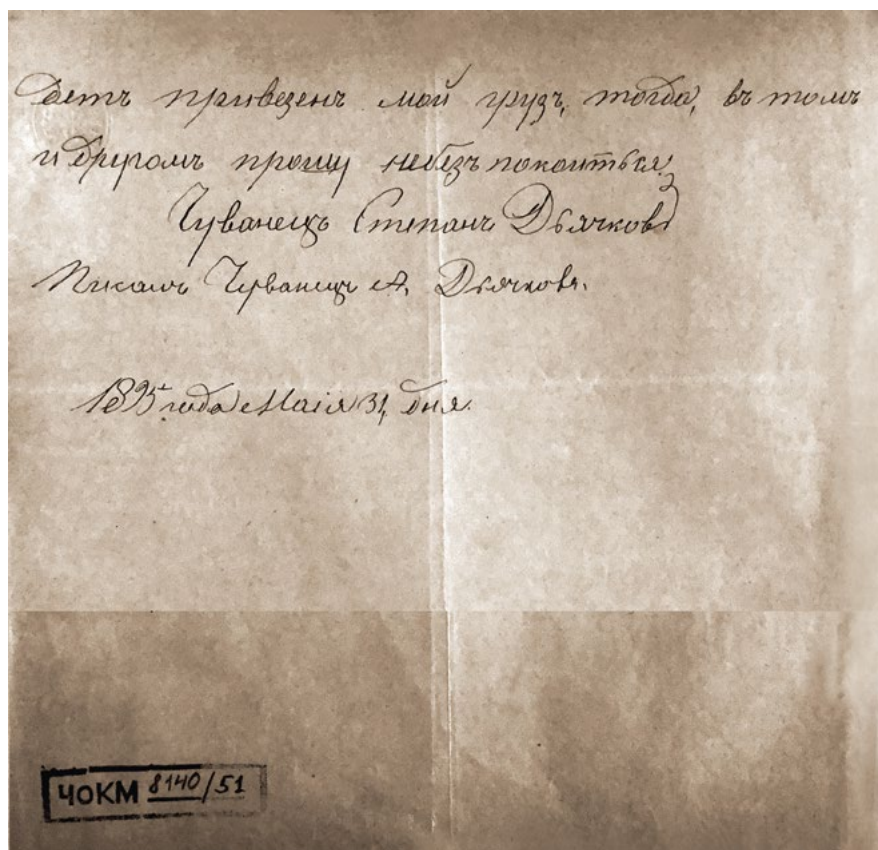 детъ привезенъ мой грузъ, тогда, въ томъ
и другомъ прошу небезъпокоиться,
Чуванецъ Степанъ Дьячковъ
Писалъ Чуванецъ А. Дьячковъ.
1895 года Маія 31, дня.
ЧОКМ 8140/51